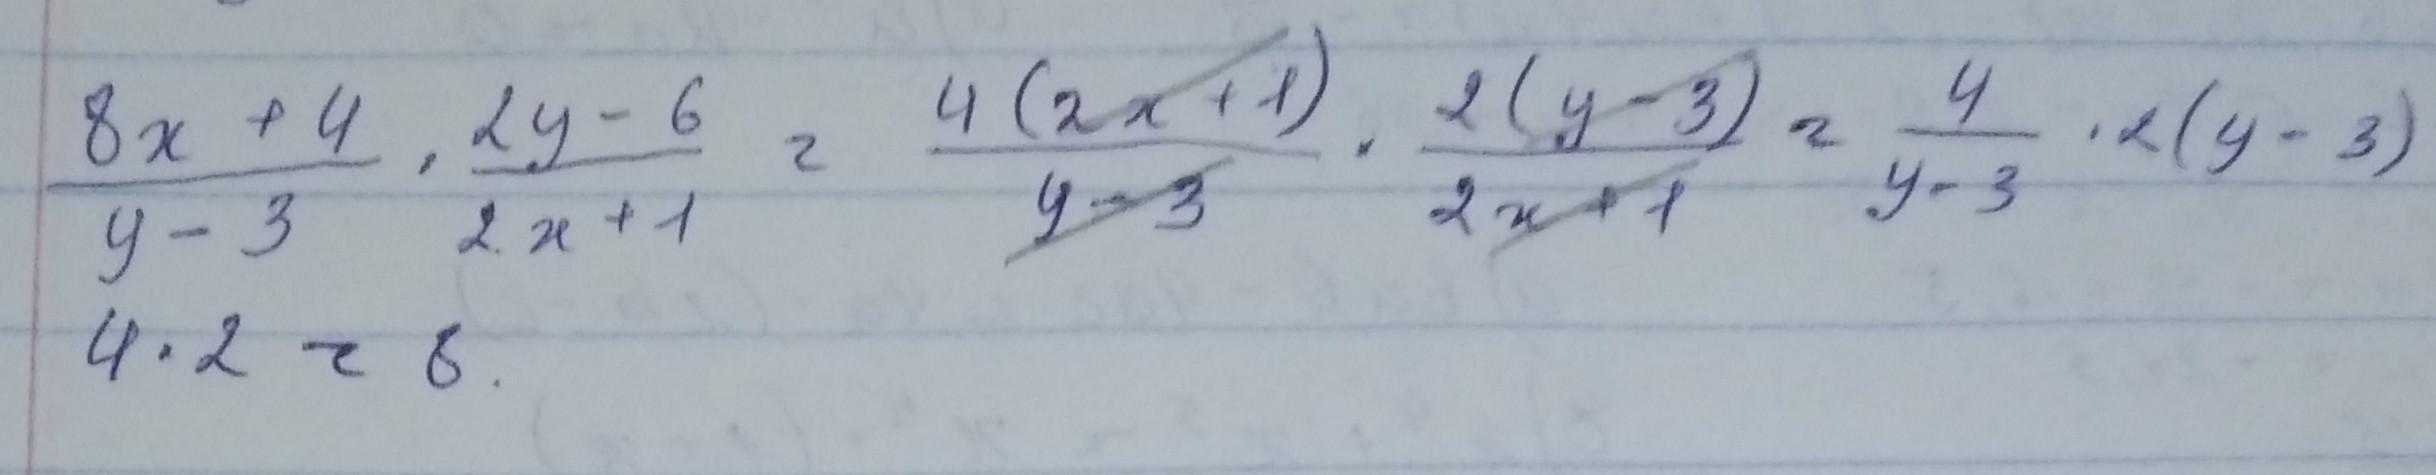 (8x + 4)/(y - 3) · (2y - 6)/(2x + 1) = 4(2x + 1)/(y - 3) · 2(y - 3)/(2x + 1) = 4/(y - 3) · 2(y - 3)
4 · 2 = 8.